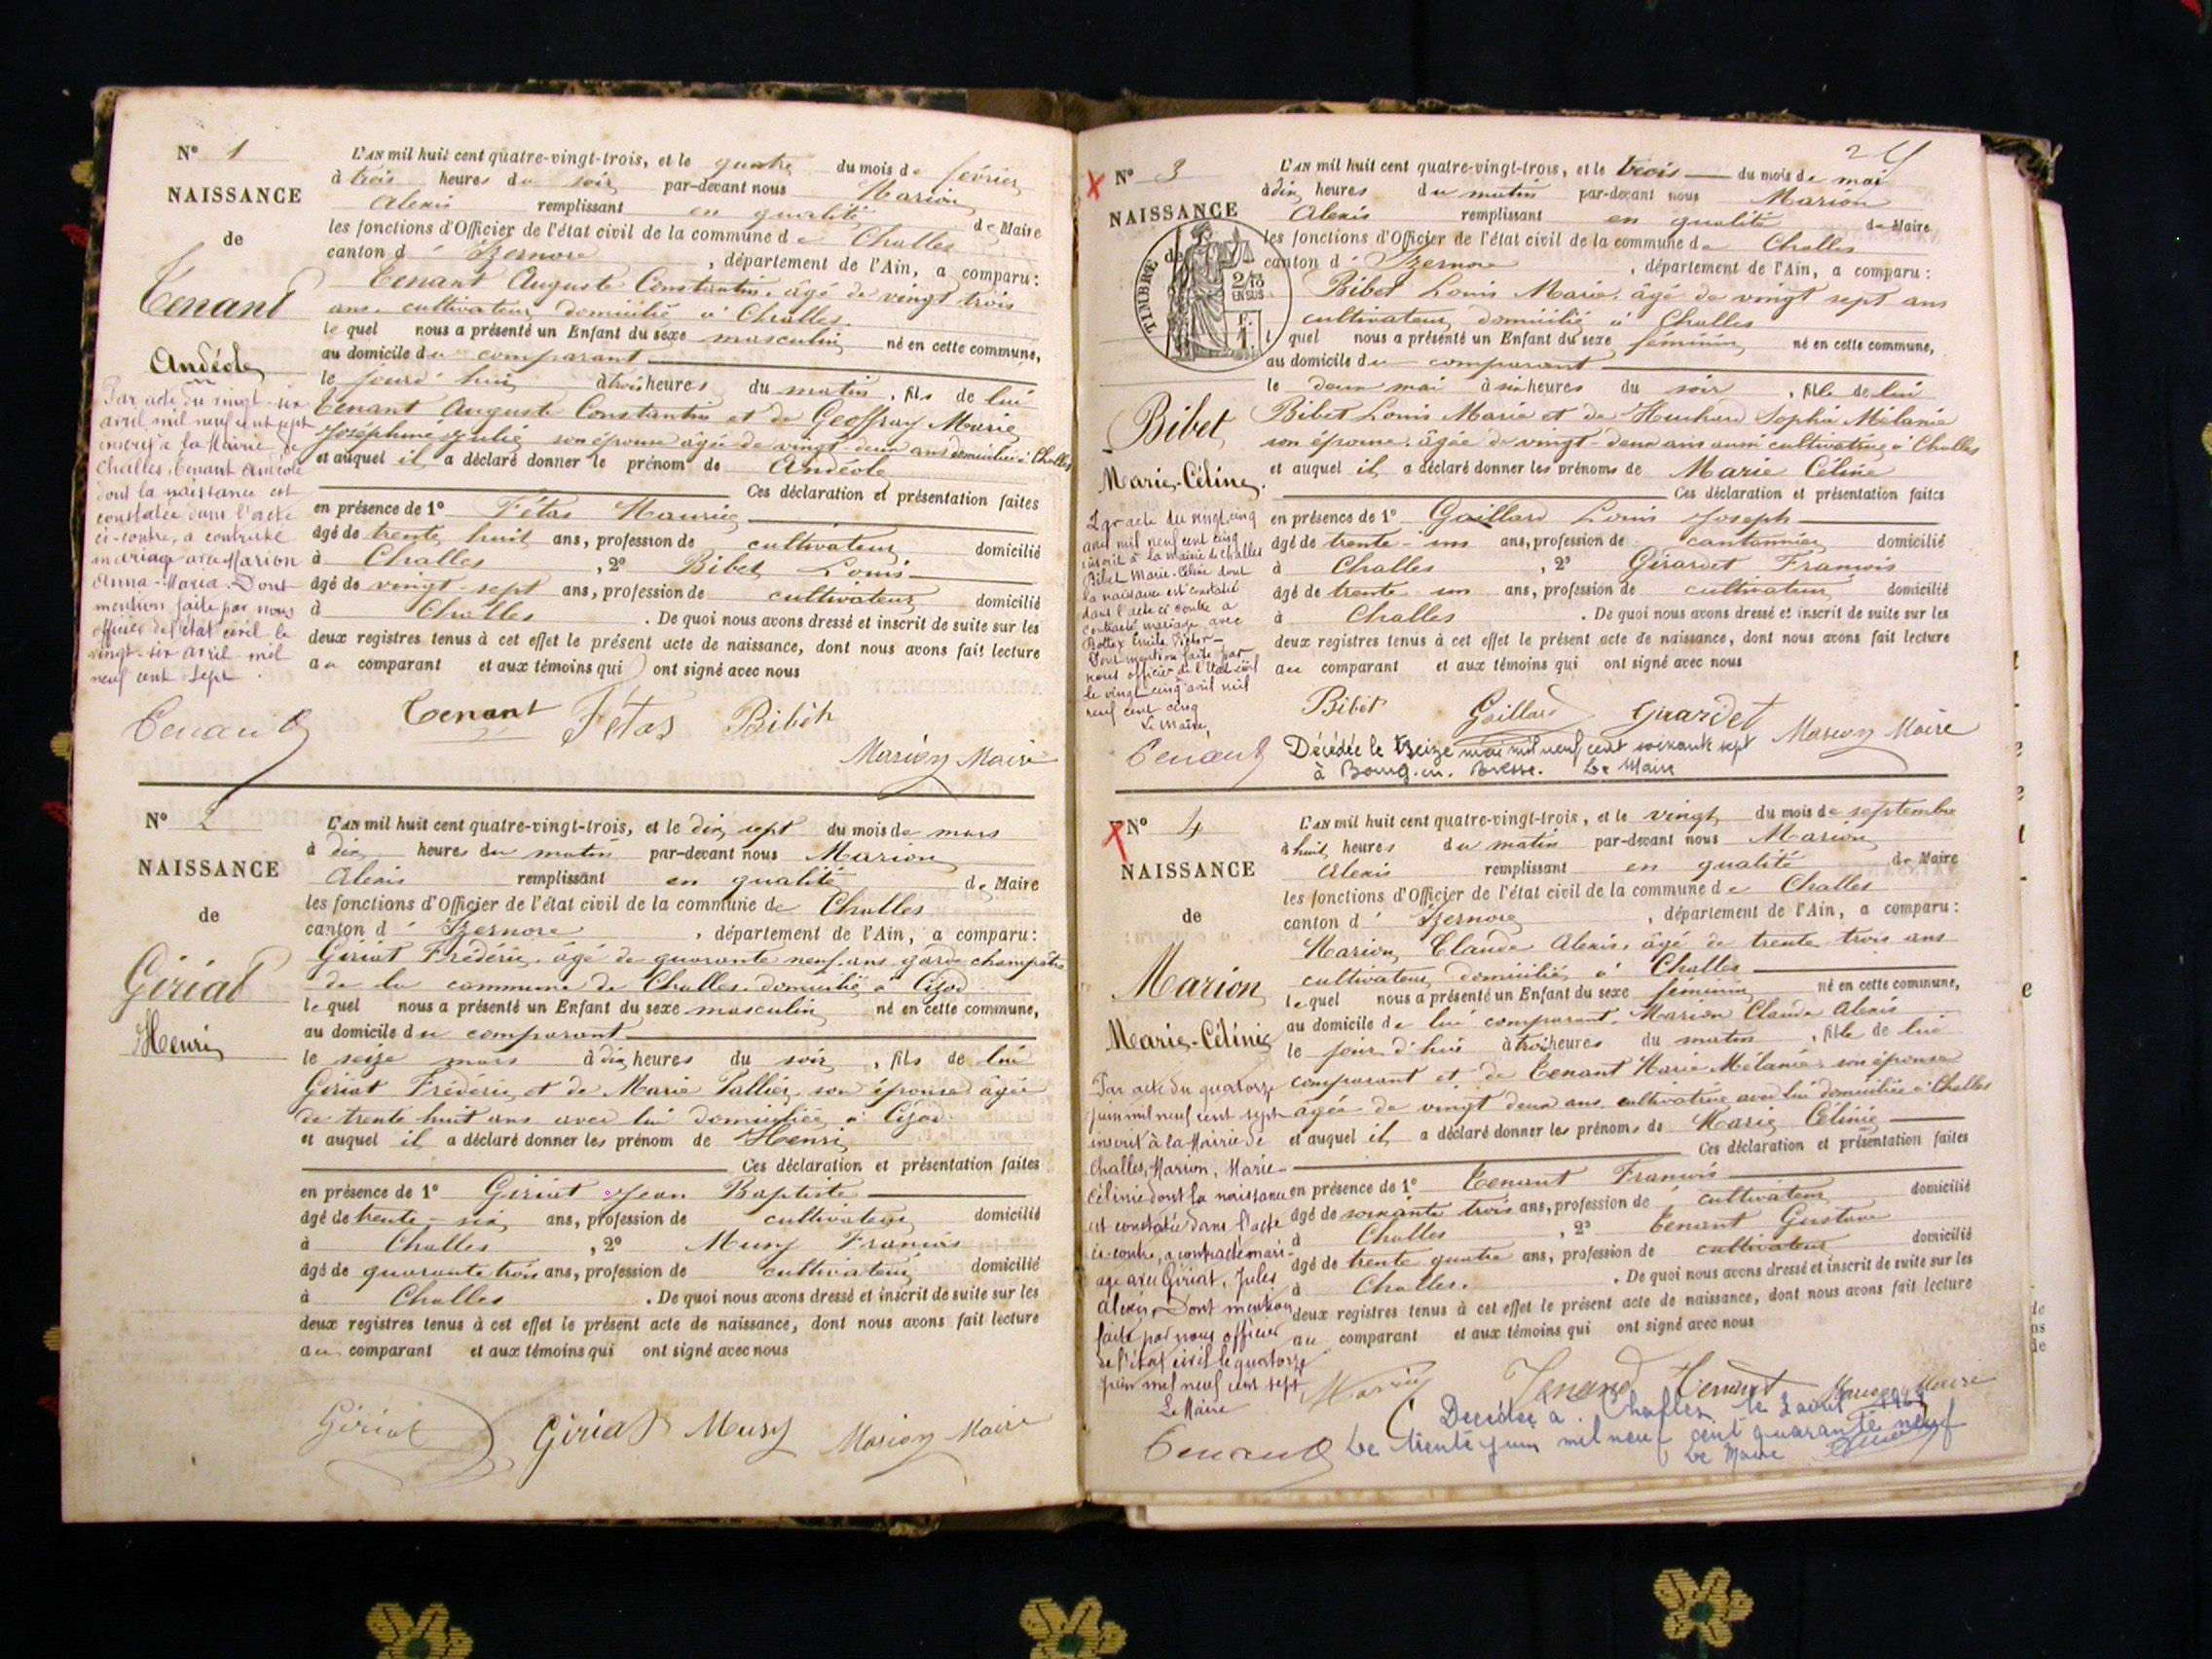 N° 1
NAISSANCE
de
Tenand
Andéole
Par acte du vingt-six
avril mil neuf cent sept
inscrit à la Mairie de
Challes, Tenant Andéole
dont la naissance est
constatée dans l'acte
ci-contre, a contracté
mariage avec Marion
Anna-Maria. Dont
mention faite par nous
officier de l'état civil le
vingt-six avril mil
neuf cent sept.
Tenand
L'AN mil huit cent quatre-vingt-trois, et le quatre du mois de février
à trois heures du soir par-devant nous Marion
Alexis remplissant en qualité de Maire
les fonctions d'Officier de l'état civil de la commune de Challes
canton d' Izernore, département de l'Ain, a comparu:
Tenant Auguste Constantin, âgé de vingt trois
ans, cultivateur domicilié à Challes
lequel nous a présenté un Enfant du sexe masculin né en cette commune,
au domicile du comparant
le jourd'hui à trois heures du matin, fils de lui
Tenant Auguste Constantin et de Geoffray Marie
Joséphine Julie son épouse âgée de vingt-deux ans domiciliée à Challes
et auquel il a déclaré donner le prénom de Andéole
Ces déclaration et présentation faites
en présence de 1° Fétas Maurice
âgé de trente huit ans, profession de cultivateur domicilié
à Challes, 2° Bibet Louis
âgé de vingt-sept ans, profession de cultivateur domicilié
à Challes. De quoi nous avons dressé et inscrit de suite sur les
deux registres tenus à cet effet le présent acte de naissance, dont nous avons fait lecture
au comparant et aux témoins qui ont signé avec nous
Tenant Fétas Bibet
Marion Maire
N° 2
NAISSANCE
de
Giriat
Henri
L'AN mil huit cent quatre-vingt-trois, et le dix sept du mois de mars
à dix heures du matin par-devant nous Marion
Alexis remplissant en qualité de Maire
les fonctions d'Officier de l'état civil de la commune de Challes
canton d' Izernore, département de l'Ain, a comparu:
Giriat Frédéric, âgé de quarante neuf ans, garde champêtre
de la commune de Challes domicilié à Cizod
lequel nous a présenté un Enfant du sexe masculin né en cette commune,
au domicile du comparant
le seize mars à dix heures du soir, fils de lui
Giriat Frédéric et de Marie Pallier son épouse âgée
de trente huit ans avec lui domiciliée à Cizod
et auquel il a déclaré donner les prénom de Henri
Ces déclaration et présentation faites
en présence de 1° Giriat Jean Baptiste
âgé de trente-six ans, profession de cultivateur domicilié
à Challes, 2° Musy François
âgé de quarante trois ans, profession de cultivateur domicilié
à Challes. De quoi nous avons dressé et inscrit de suite sur les
deux registres tenus à cet effet le présent acte de naissance, dont nous avons fait lecture
au comparant et aux témoins qui ont signé avec nous
Giriat Giriat Musy Marion Maire
N° 3
NAISSANCE
de
TIMBRE
2/10
EN SUS
Bibet
Marie-Céline.
Par acte du vingt cinq
avril mil neuf cent cinq
inscrit à la mairie de Challes
Bibet Marie-Céline dont
la naissance est constatée
dans l'acte ci contre a
contracté mariage avec
Bottex Emile Victor
Dont mention faite par
nous officier de l'Etat civil
le vingt cinq avril mil
neuf cent cinq
Le Maire,
Tenand
L'AN mil huit cent quatre-vingt-trois, et le trois du mois de mai
à dix heures du matin par-devant nous Marion
Alexis remplissant en qualité de Maire
les fonctions d'Officier de l'état civil de la commune de Challes
canton d' Izernore, département de l'Ain, a comparu:
Bibet Louis Marie, âgé de vingt sept ans
cultivateur domicilié à Challes
lequel nous a présenté un Enfant du sexe féminin né en cette commune,
au domicile du comparant
le deux mai à six heures du soir, fille de lui
Bibet Louis Marie et de Sophie Mélanie
son épouse, âgée de vingt-deux ans aussi cultivatrice à Challes
et auquel il a déclaré donner les prénoms de Marie Céline
Ces déclaration et présentation faites
en présence de 1° Gaillard Louis Joseph
âgé de trente-un ans, profession de cantonnier domicilié
à Challes, 2° Girardet François
âgé de trente un ans, profession de cultivateur domicilié
à Challes. De quoi nous avons dressé et inscrit de suite sur les
deux registres tenus à cet effet le présent acte de naissance, dont nous avons fait lecture
au comparant et aux témoins qui ont signé avec nous
Bibet Gaillard Girardet Marion Maire
Décédée le treize mai mil neuf cent soixante sept
à Bourg-en-Bresse. Le Maire
N° 4
NAISSANCE
de
Marion
Marie-Célinie
Par acte du quatorze
juin mil neuf cent sept
inscrit à la Mairie de
Challes, Marion, Marie-
Célinie dont la naissance
est constatée dans l'acte
ci-contre, a contracté mari-
age avec Giriat, Jules
Alexis. Dont mention
faite par nous officier
de l'état civil le quatorze
juin mil neuf cent sept
Le Maire
Tenand
L'AN mil huit cent quatre-vingt-trois, et le vingt du mois de septembre
à huit heures du matin par-devant nous Marion
Alexis remplissant en qualité de Maire
les fonctions d'Officier de l'état civil de la commune de Challes
canton d' Izernore, département de l'Ain, a comparu:
Marion Claude Alexis, âgé de trente trois ans
cultivateur domicilié à Challes
lequel nous a présenté un Enfant du sexe féminin né en cette commune,
au domicile de lui comparant, Marion Claude Alexis
le jour d'hui à trois heures du matin, fille de lui
comparant et de Tenant Marie Mélanie son épouse
âgée de vingt deux ans cultivatrice avec lui domiciliée à Challes
et auquel il a déclaré donner les prénoms de Marie Célinie
Ces déclaration et présentation faites
en présence de 1° Tenant François
âgé de soixante trois ans, profession de cultivateur domicilié
à Challes, 2° Tenant Gustave
âgé de trente quatre ans, profession de cultivateur domicilié
à Challes. De quoi nous avons dressé et inscrit de suite sur les
deux registres tenus à cet effet le présent acte de naissance, dont nous avons fait lecture
au comparant et aux témoins qui ont signé avec nous
Marion Tenand Tenant Marion Maire
Décédée à Challes le 3 août
Le trente juin mil neuf cent quarante neuf
Le Maire